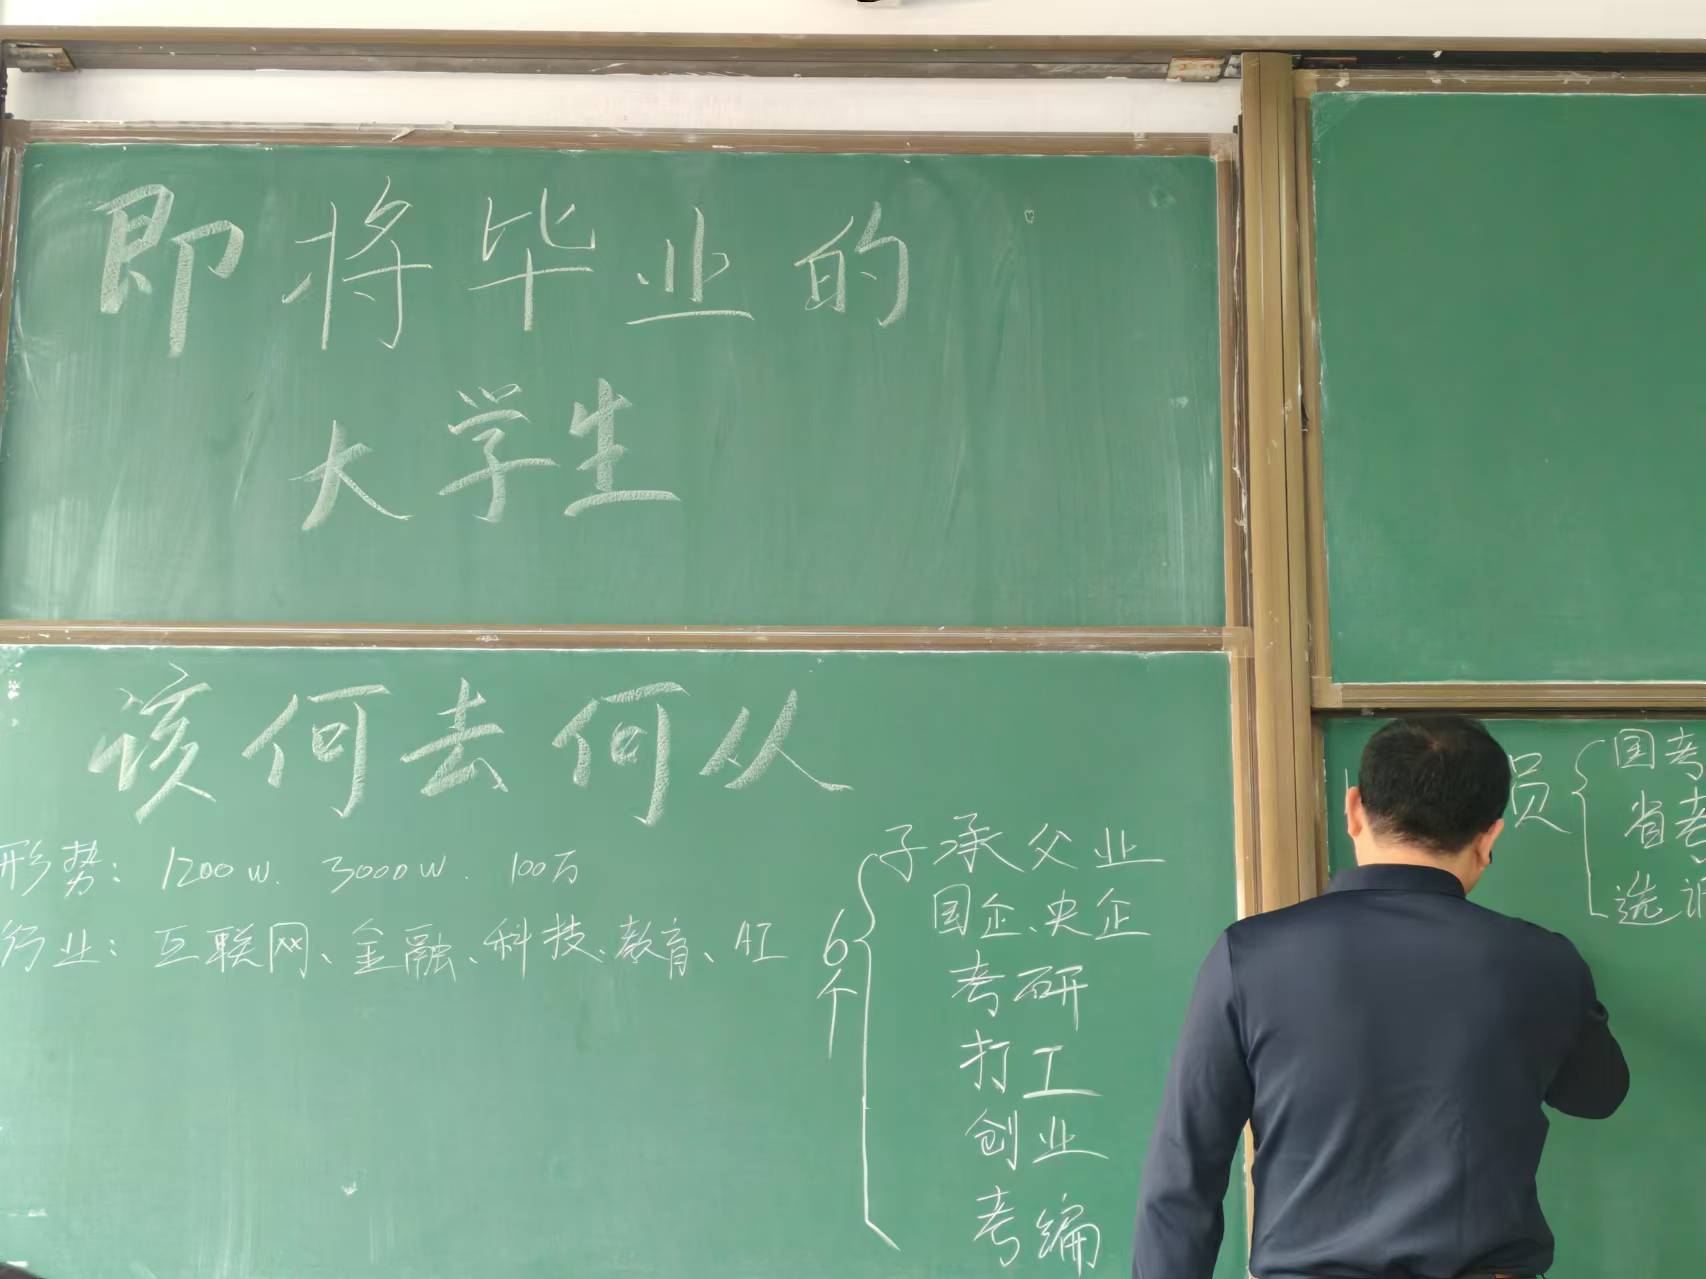 即将毕业的
大学生
该何去何从
形势：1200w. 3000w. 100万
行业：互联网、金融、科技、教育、AI
6个
子承父业
国企、央企
考研
打工
创业
考编
员
国考
省考
选调